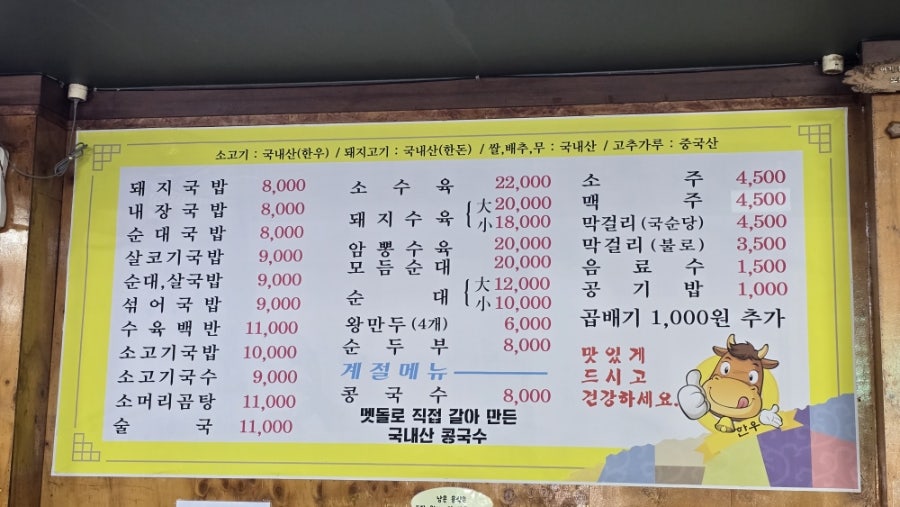 소고기 : 국내산(한우) / 돼지고기 : 국내산(한돈) / 쌀,배추,무 : 국내산 / 고추가루 : 중국산
돼지국밥 8,000
내장국밥 8,000
순대국밥 8,000
살코기국밥 9,000
순대,살국밥 9,000
섞어국밥 9,000
수육백반 11,000
소고기국밥 10,000
소고기국수 9,000
소머리곰탕 11,000
술국 11,000
소수육 22,000
돼지수육 大 20,000
小 18,000
암뽕수육 20,000
모듬순대 20,000
순대 大 12,000
小 10,000
왕만두(4개) 6,000
순두부 8,000
계절메뉴
콩국수 8,000
멧돌로 직접 갈아 만든
국내산 콩국수
소주 4,500
맥주 4,500
막걸리(국순당) 4,500
막걸리(불로) 3,500
음료수 1,500
공기밥 1,000
곱배기 1,000원 추가
맛있게
드시고
건강하세요.
한우